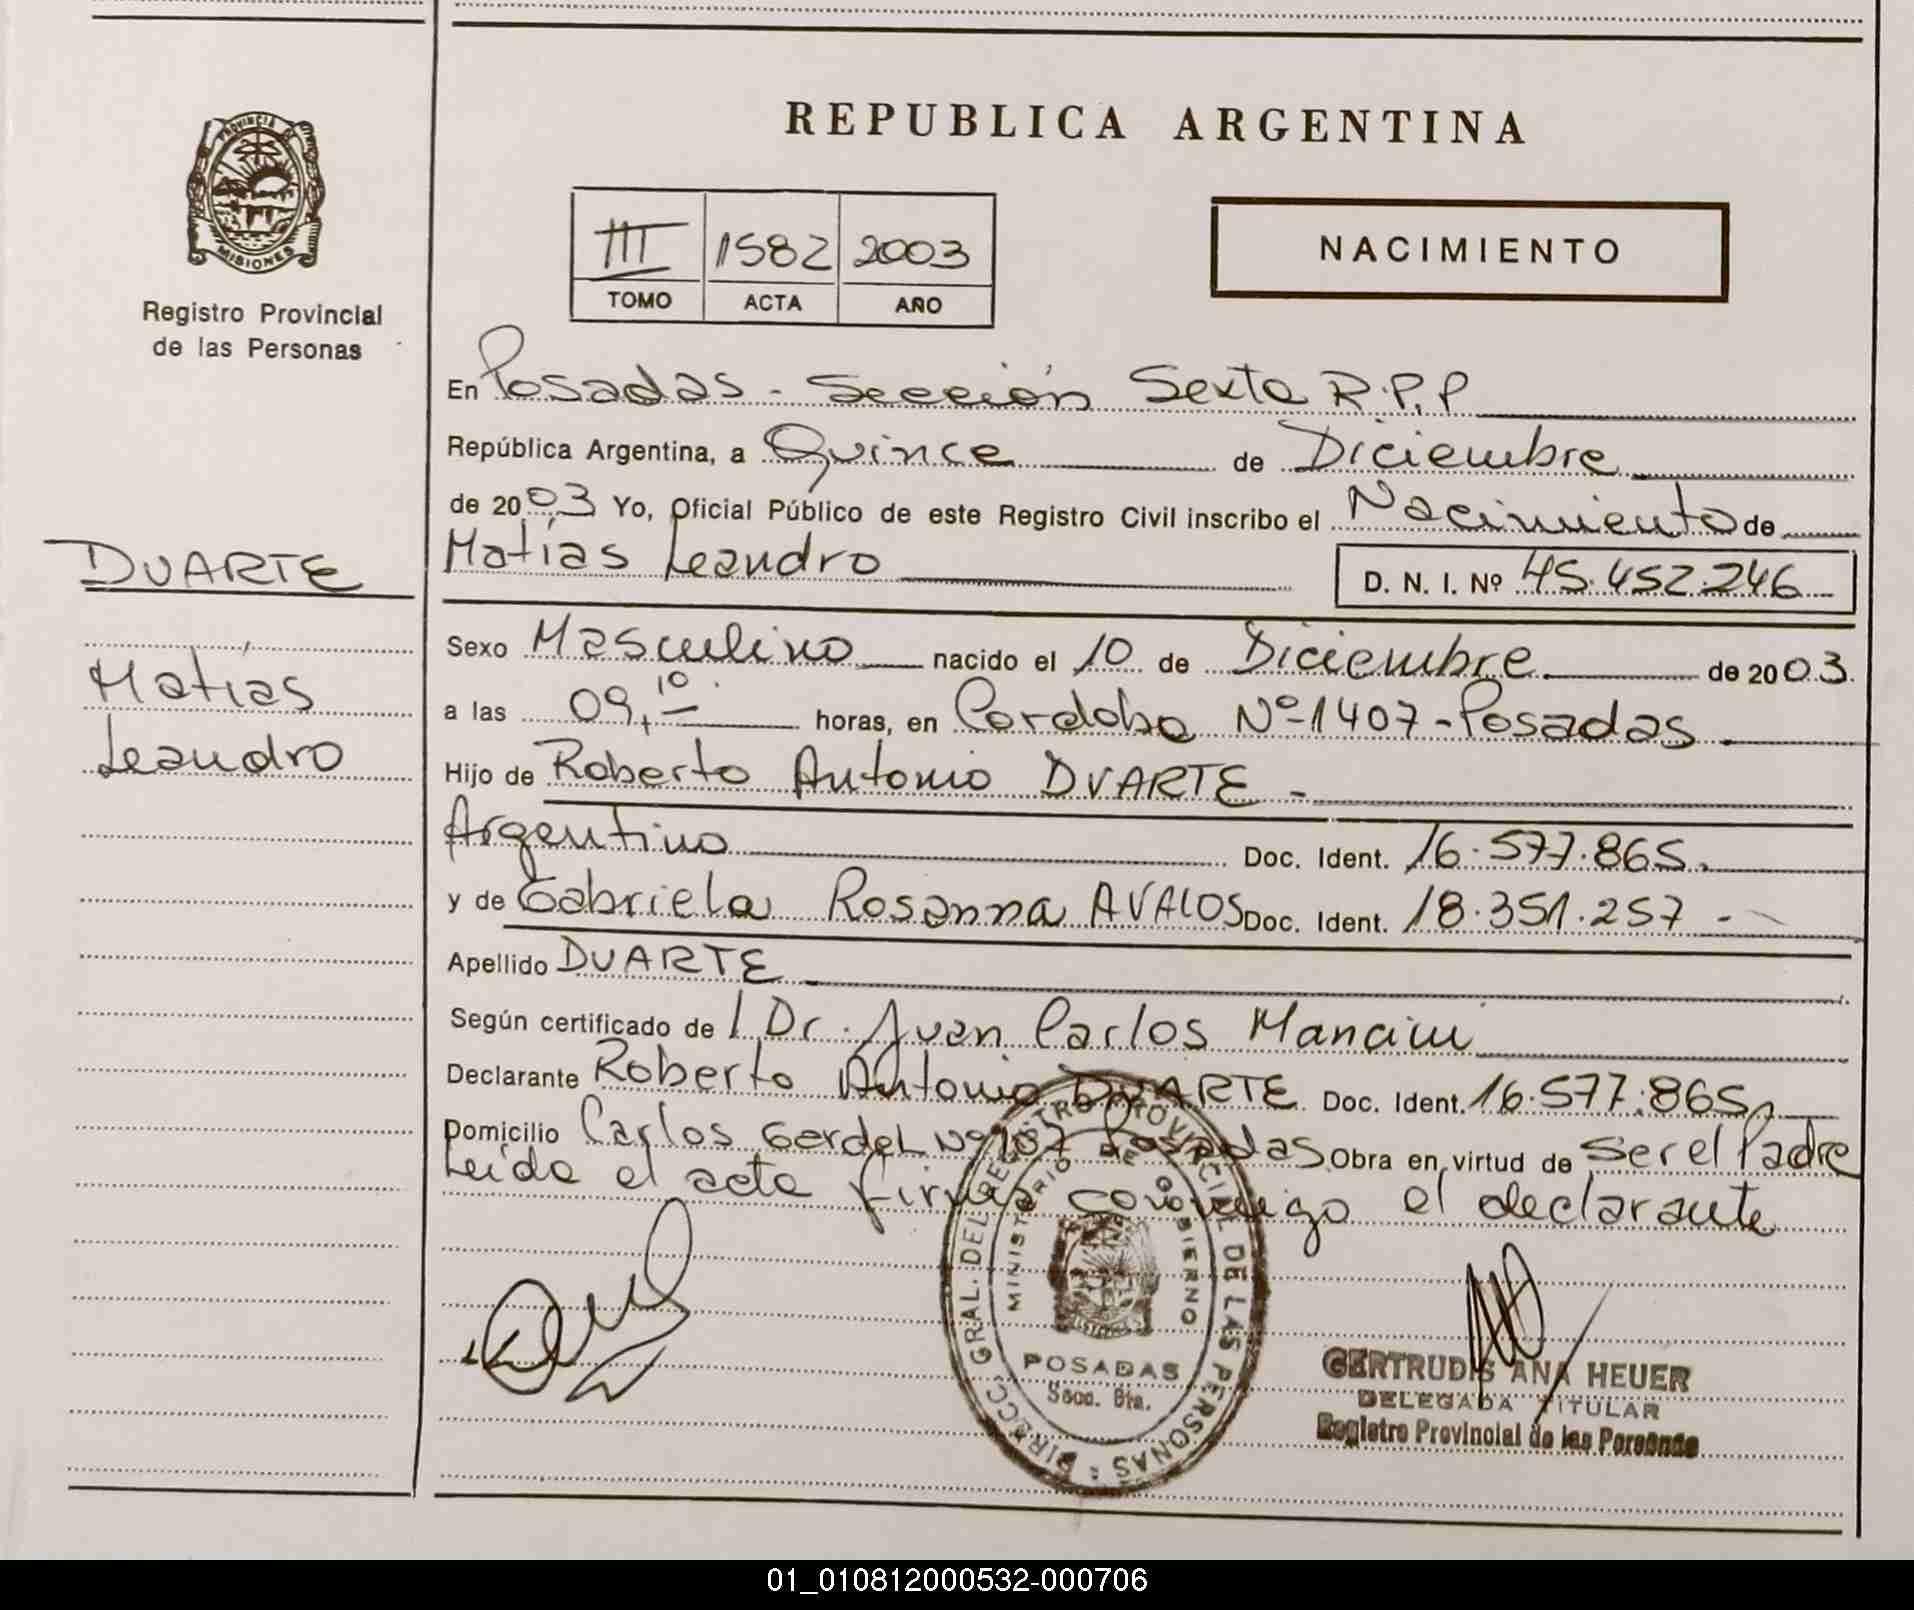 REPUBLICA ARGENTINA
PROVINCIA DE
MISIONES
Registro Provincial
de las Personas
III 1582 2003
TOMO ACTA AÑO
NACIMIENTO
En Posadas - Sección Sexta R.P.P
República Argentina, a Quince de Diciembre
de 2003 Yo, Oficial Público de este Registro Civil inscribo el Nacimiento de
Matías Leandro D. N. I. Nº 45.452.246
DUARTE
Matías
Leandro
Sexo Masculino nacido el 10 de Diciembre de 2003.
a las 09,10 horas, en Cordoba Nº 1407 - Posadas
Hijo de Roberto Antonio DUARTE -
Argentino Doc. Ident. 16.577.865.
y de Gabriela Rosanna AVALOS Doc. Ident. 18.351.257 -
Apellido DUARTE
Según certificado de l Dr. Juan Carlos Mancini
Declarante Roberto Antonio DUARTE Doc. Ident. 16.577.865
Domicilio Carlos Gerdel Nº 187 Posadas Obra en virtud de Ser el Padre
Leída el acta firma conmigo el declarante
DIRECC. GRAL. DEL REGISTRO PROVINCIAL DE LAS PERSONAS
MINISTERIO DE GOBIERNO
POSADAS
Secc. 6ta.
GERTRUDIS ANA HEUER
DELEGADA TITULAR
Registro Provincial de las Personas
01_010812000532-000706